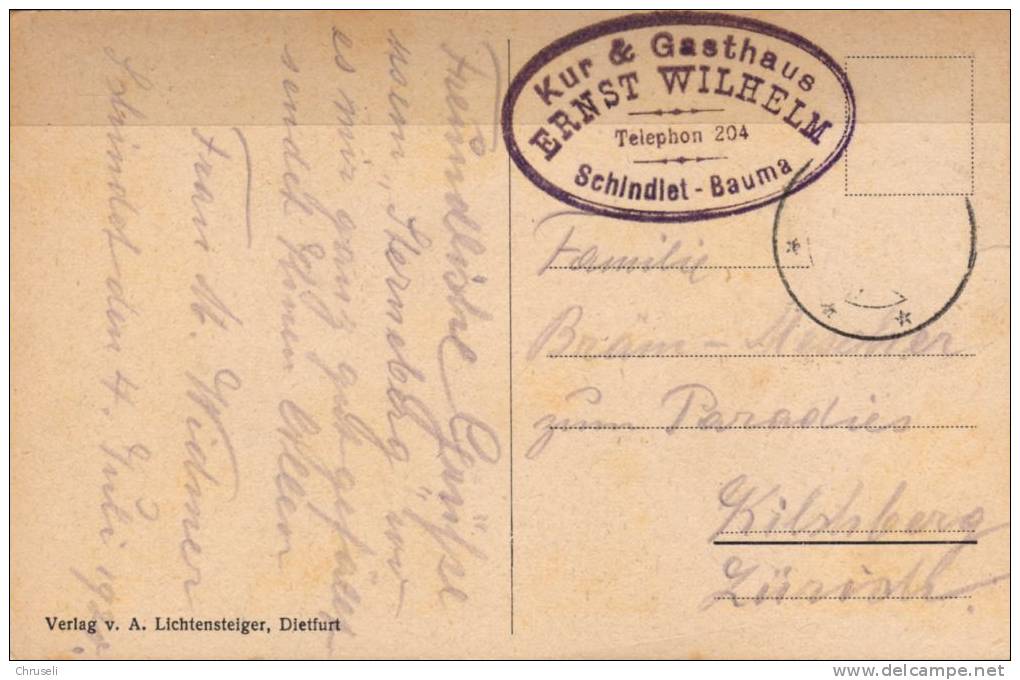 Kur & Gasthaus
ERNST WILHELM
Telephon 204
Schindlet - Bauma
Freündliche Grüsse
vom "Sterneberg" wo
es mir ganz gut gefällt
sendet Ihnen Allen
Frau M. Widmer
Schindlet den 4. Juli
Familie
Bräm -
zum Paradies
Kilchberg
Zürich.
Verlag v. A. Lichtensteiger, Dietfurt
Chruseli
delcampe.net